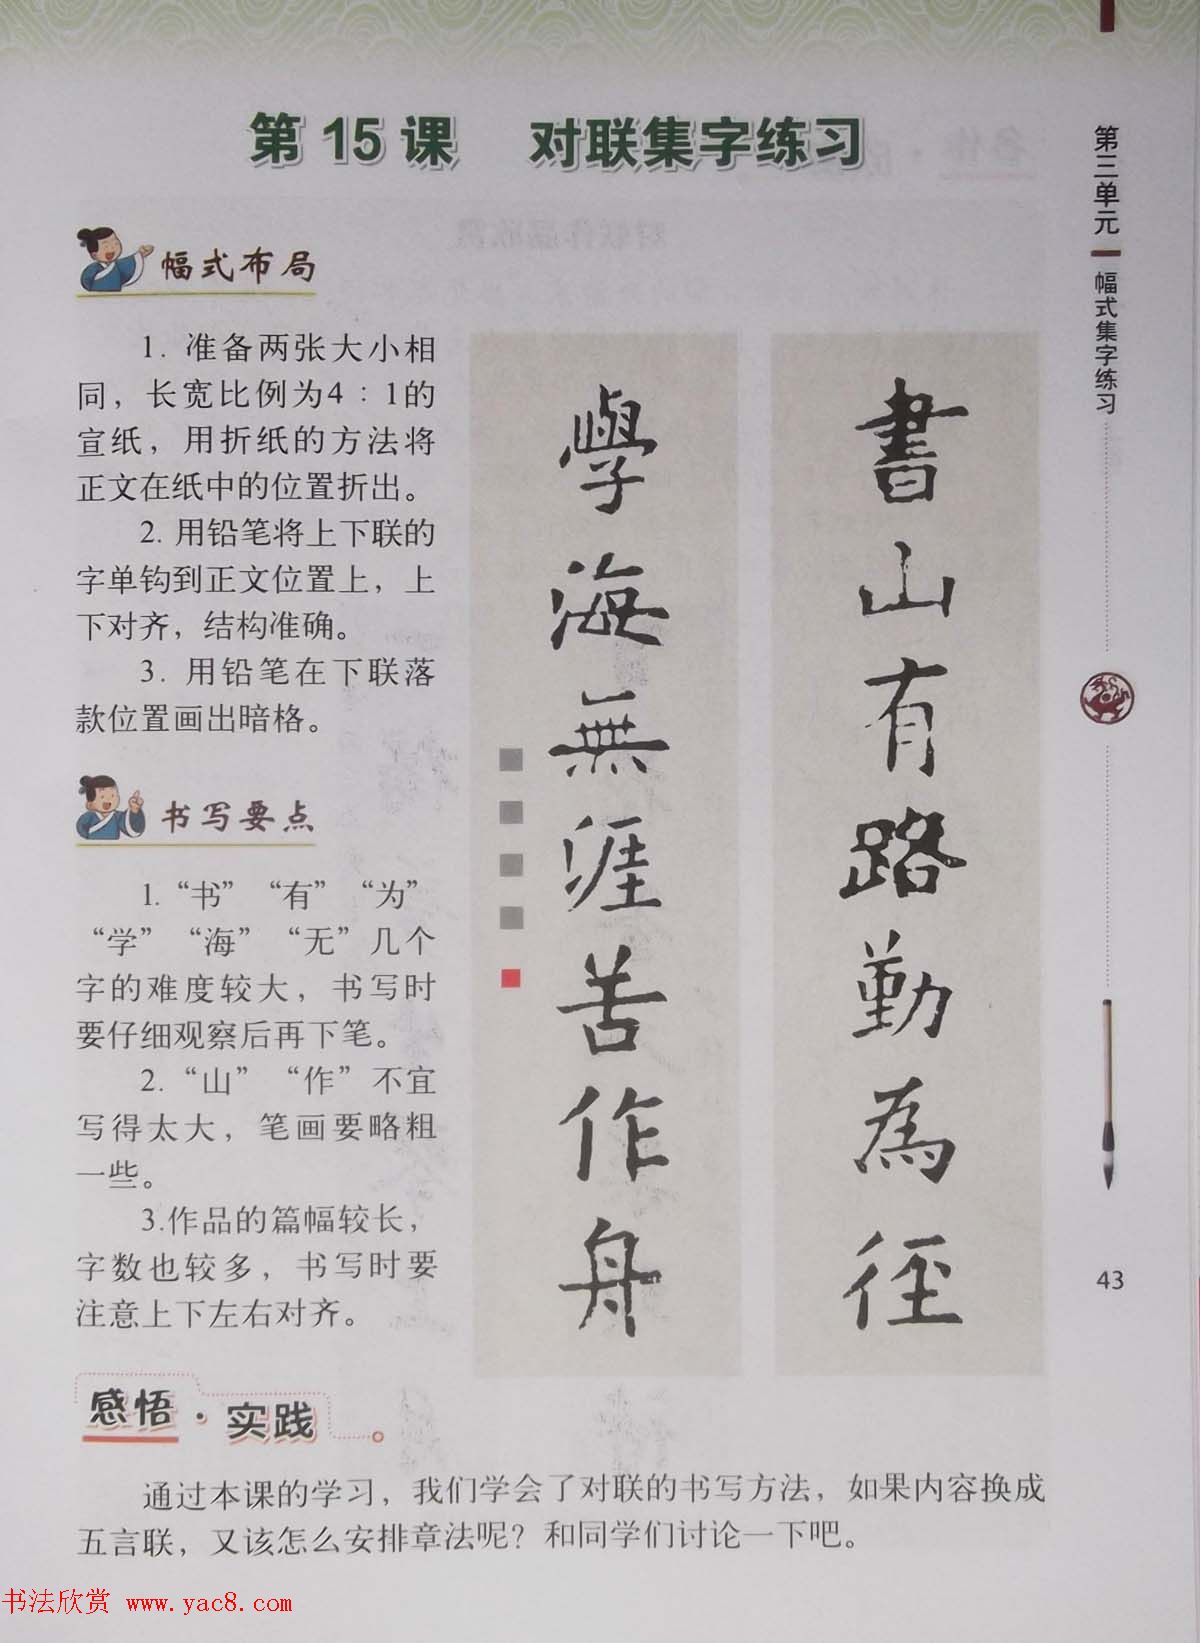 第15课 对联集字练习
第三单元
幅式集字练习
幅式布局
1. 准备两张大小相
同，长宽比例为4∶1的
宣纸，用折纸的方法将
正文在纸中的位置折出。
2. 用铅笔将上下联的
字单钩到正文位置上，上
下对齐，结构准确。
3. 用铅笔在下联落
款位置画出暗格。
書山有路勤為徑
學海無涯苦作舟
书写要点
1.“书”“有”“为”
“学”“海”“无”几个
字的难度较大，书写时
要仔细观察后再下笔。
2.“山”“作”不宜
写得太大，笔画要略粗
一些。
3.作品的篇幅较长，
字数也较多，书写时要
注意上下左右对齐。
43
感悟·实践
通过本课的学习，我们学会了对联的书写方法，如果内容换成
五言联，又该怎么安排章法呢？和同学们讨论一下吧。
书法欣赏 www.yac8.com